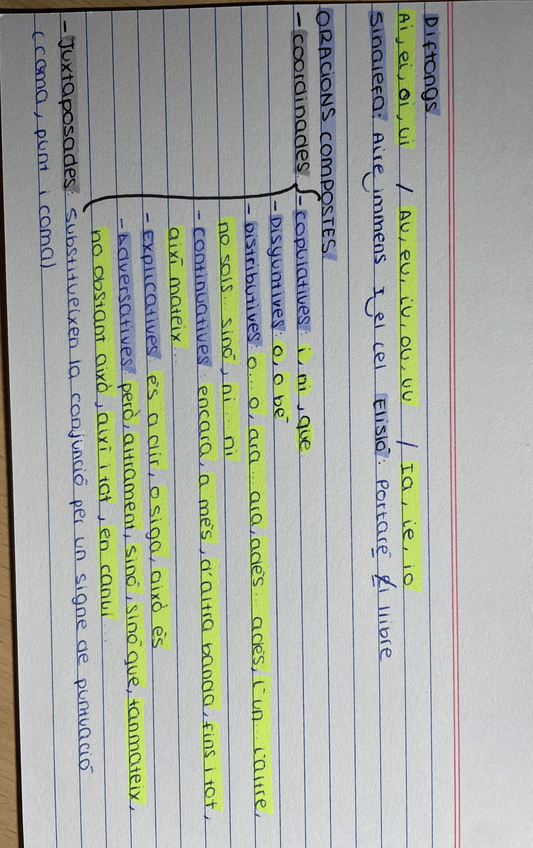 Diftongs
Ai, ei, oi, ui / Au, eu, iu, ou, uu / Ia, ie io
Sinalefa: Aire immens I el cel Elisió: Portaré El llibre
ORACIONS COMPOSTES
- Coordinades: - copulatives: i, ni, que
- Disjuntives: o, o bé
- Distributives: o... o, ara... ara, adés... adés, l'un... l'altre,
no sols... sinó, ni... ni
- Continuatives encara, a més, d'altra banda, fins i tot,
així mateix...
- Explicatives és a dir, o siga, això és
- Adversatives però, altrament, sinó, sinó que, tanmateix,
no obstant això, així i tot, en canvi...
- Juxtaposades: Substitueixen la conjunció per un signe de puntuació
(coma, punt i coma)